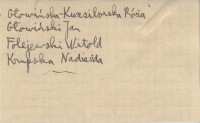 Głowińska-Kurzilorska Róża
Głowiński Jan
Folejewski Witold
Krupska Nadieżda